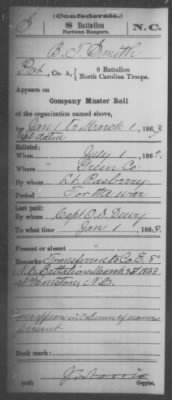 S (Confederate.)
8 Battalion N.C.
Partisan Rangers.
Smith
Pvt, Co. A, 8 Battalion
North Carolina Troops.
Appears on
Company Muster Roll
of the organization named above,
for Jany 1 to March 1, 1863
Not dated
Enlisted:
When July, 186
Where Green Co
By whom Lt.
Period For the war
Last paid:
By whom Capt
To what time Jan 1, 186
Present or absent
Remarks: Transferred to Co. E. 8th
N.C. Battalion March 23d 1863
at Kinston, N.C.
in column of names
present
Book mark:
Copyist.